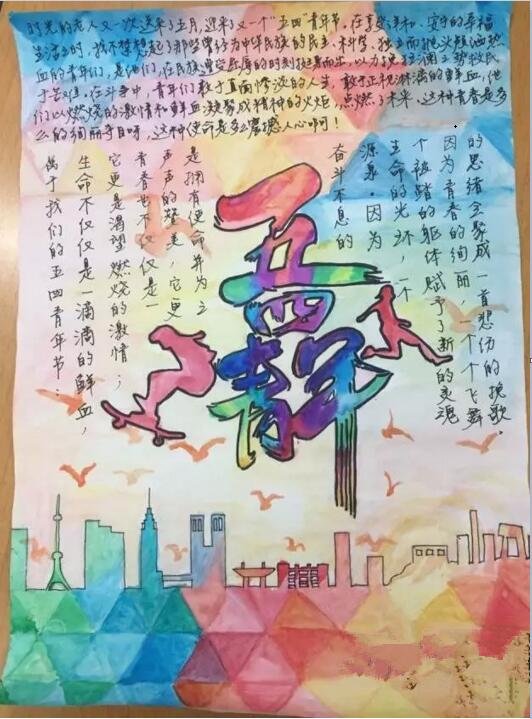 时光的老人又一次送来了五月，迎来了又一个“五四”青年节。在享受亲和、安宁的幸福
生活之时，我不禁想起了那些曾经为中华民族的民主、科学、独立而抛头颅洒热
血的青年们，是他们，在民族遭受屈辱的时刻挺身而出，以力挽狂澜之势救民
于苦难。在斗争中，青年们敢于直面惨淡的人生，敢于正视淋漓的鲜血，他
们以燃烧的激情和鲜血凝聚成精神的火炬，点燃了未来，这种青春是多
么的绚丽夺目呀，这种使命是多么震撼人心啊！
的思绪会聚成一首悲伤的挽歌。
因为青春的绚丽，一个个飞舞
个被踏的躯体赋予了新的灵魂
生命的光环，一个
源泉。因为
奋斗不息的
五四
青年
是拥有使命并为之
声声的赞美，它更
青春也不仅仅是一
它更是渴望燃烧的激情；
生命不仅仅是一滴滴的鲜血，
属于我们的五四青年节！